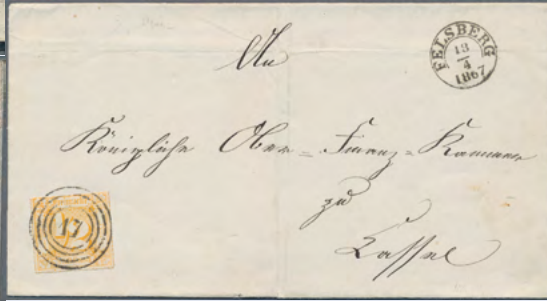 An
FELSBERG
18
4
1867
Königliche Ober-Finanz-Kammer
zu
Cassel
17